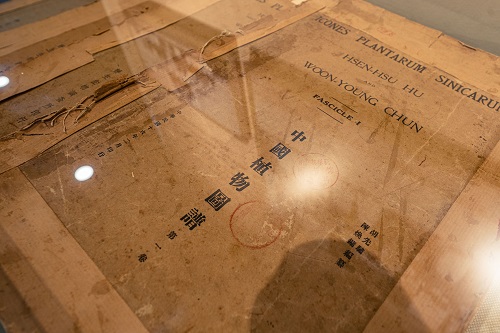 ICONES PLANTARUM SINICARU
HSEN-HSU HU
WOON-YOUNG CHUN
FASCICLE 1
中國植物圖譜
第一卷
胡先驌
陳煥鏞
編纂